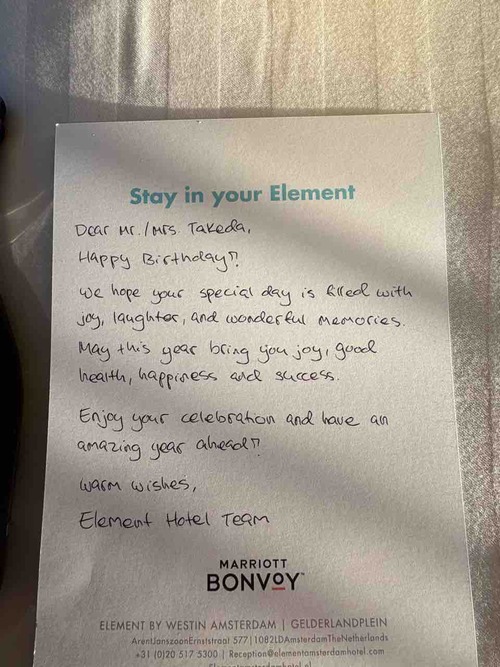 Stay in your Element
Dear Mr./Mrs. Takeda,
Happy Birthday!!
We hope your special day is filled with
joy, laughter, and wonderful memories.
May this year bring you joy, good
health, happiness and success.
Enjoy your celebration and have an
amazing year ahead!!
Warm wishes,
Element Hotel Team
MARRIOTT
BONVOY™
ELEMENT BY WESTIN AMSTERDAM | GELDERLANDPLEIN
ArentJanszoonErnststraat 577|1082LDAmsterdamTheNetherlands
+31 (0)20 517 5300 | Reception@elementamsterdamhotel.com
Elementamsterdamhotel.nl